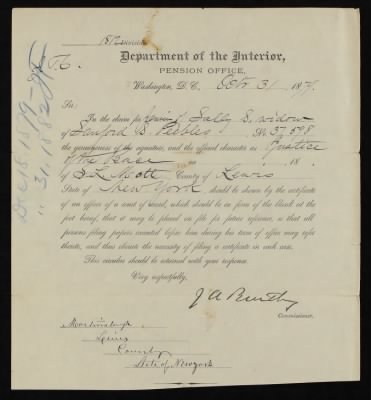 1812
Department of the Interior,
PENSION OFFICE,
Washington, D. C., Octr 31, 1879.
Sir:
In the claim for Pension of Sally S. widow
of Sanford D. Peebles No. 37,598
the genuineness of the signature, and the official character as Justice
of the Peace on , 18 ,
of S L Mott County of Lewis
State of New York should be shown by the certificate
of an officer of a court of record, which should be in form of the blank at the
foot hereof, that it may be placed on file for future reference, so that all
persons filing papers executed before him during his term of office may refer
thereto, and thus obviate the necessity of filing a certificate in each case.
This circular should be returned with your response.
Very respectfully,
J A Bentley
Commissioner.
Martinsburgh
Lewis
County
State of New york
Dec 18 1879
" 31, 1882